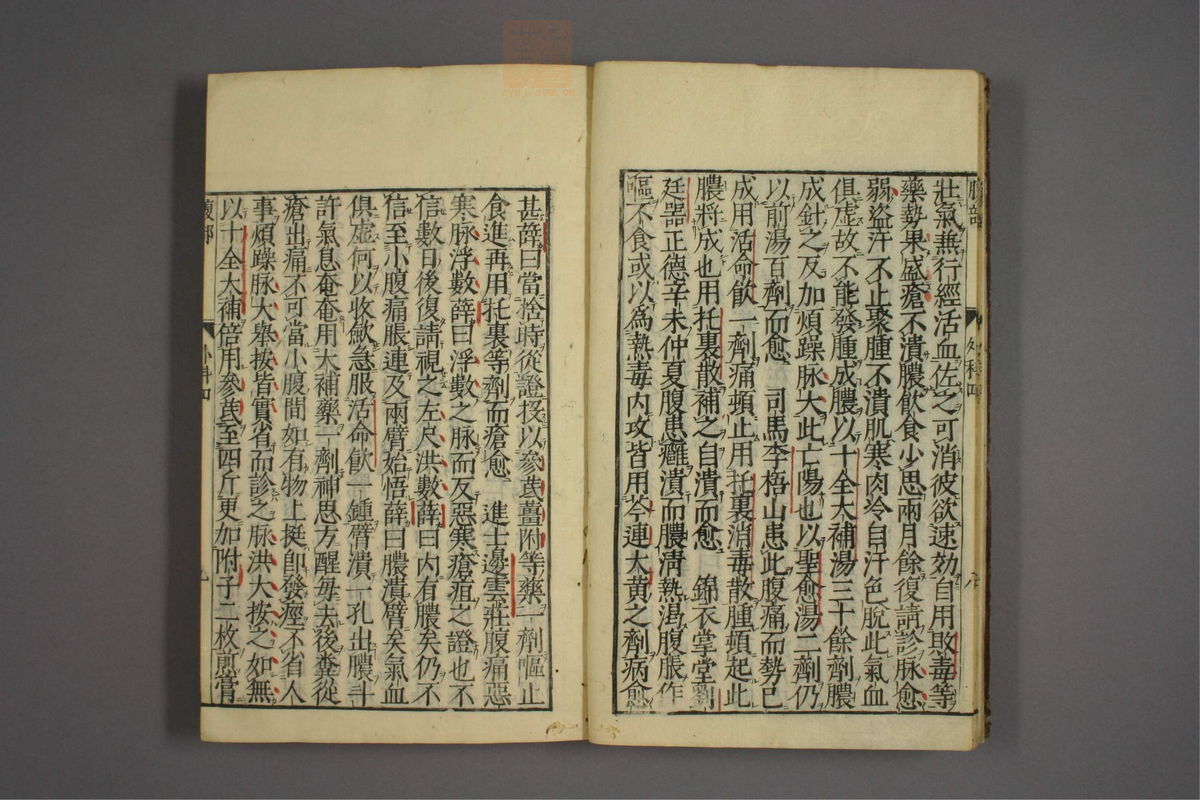 壯氣無行經活血佐之可消彼欲速効自用敗毒等
藥勢果盛瘡不潰膿飲食少思兩月餘復請診脉愈
弱盗汗不止聚腫不潰肌寒肉冷自汗色脫此氣血
俱虛故不能發腫成膿以十全大補湯三十餘劑膿
成針之反加煩躁脉大此亡陽也以聖愈湯二劑仍
以前湯百劑而愈 司馬李梧山患此腹痛而勢已
成用活命飲一劑痛頓止用托裏消毒散腫頓起此
膿將成也用托裏散補之自潰而愈 錦衣掌堂劉
廷器正德辛未仲夏腹患癰潰而膿淸熱渴腹脹作
嘔不食或以爲熱毒内攻皆用芩連大黃之劑病愈
腹部
外科四
八
甚薛曰當捨時從證投以參芪薑附等藥一劑嘔止
食進再用托裏等劑而瘡愈 進士邊雲莊腹痛惡
寒脉浮數薛曰浮數之脉而反惡寒瘡疽之證也不
信數日後復請視之左尺洪數薛曰内有膿矣仍不
信至小腹痛脹連及兩臂始悟薛曰膿潰臂矣氣血
俱虛何以收歛急服活命飲一鍾臂潰一孔出膿斗
許氣息奄奄用大補藥一劑神思方醒每去後糞從
瘡出痛不可當小腹間如有物上挺即發痙不省人
事煩躁脉大舉按皆實省而診之脉洪大按之如無
以十全大補倍用參芪至四斤更加附子二枚煎膏
腹部
外科四
九